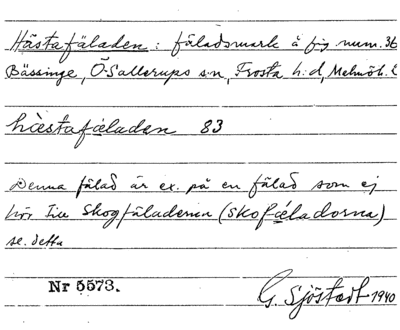 Hästafäladen: fäladsmark å fig num. 36
Bässinge, Ö Sallerups sn, Frosta h:d, Malmöh. l
hästafäladen 83
Denna fälad är ex. på en fälad som ej
hör till Skogfäladerna (skofäladorna)
se. detta
Nr 5573.
G. Sjöstedt 1940